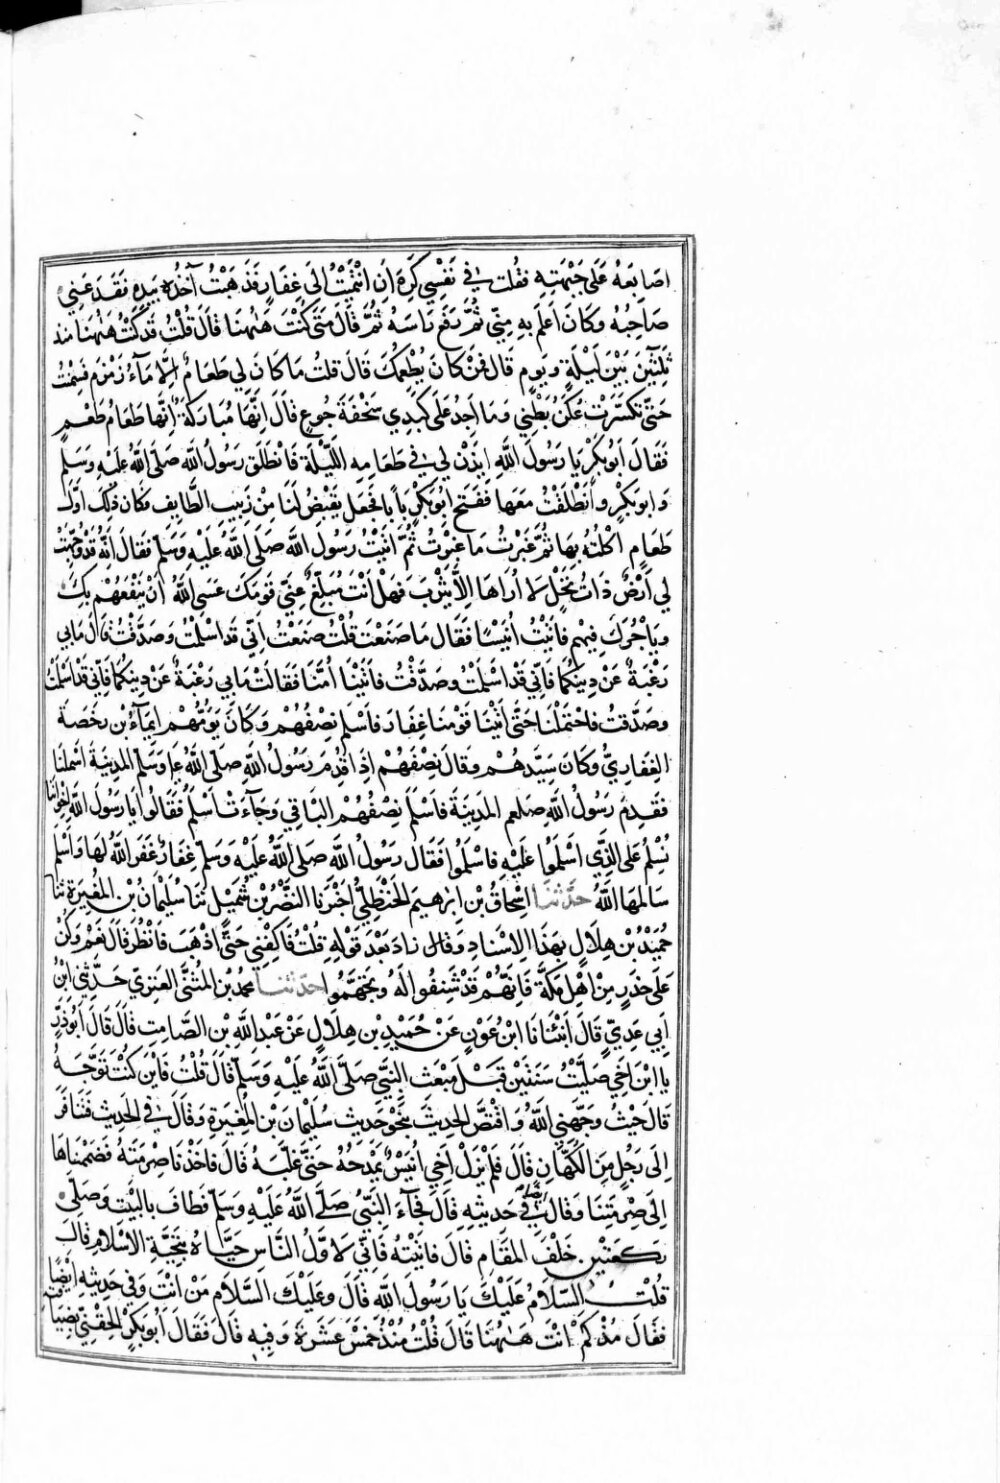 اصَابِعَهُ عَلَى جَبْهَتِهِ فقُلت فِي نَفْسِي كَرِهَ اَنِ انْتَمَيْتُ اِلَى غِفَارٍ فَذَهَبْتُ آخُذُ بِيَدِهِ فَقَدَعَنِي
صَاحِبُهُ وَكَانَ اَعْلَمَ بِهِ مِنِّي ثُمَّ رَفَعَ رَاسَهُ ثُمَّ قَالَ مَتَى كُنْتَ هٰهُنَا قَالَ قُلْتُ قَد كُنْتُ هٰهُنَا مند
ثَلٰثِيْنَ بَيْنَ لَيْلَةٍ وَيَومٍ قَالَ فَمَنْ كَانَ يُطْعِمُكَ قَالَ قلتُ مَا كَانَ لِي طَعَامٌ اِلَّا مَآءُ زَمْزَمَ فَسِمِنْتُ
حَتَّى تَكَسَّرَتْ عُكَنُ بَطْنِي وَمَا اَجِدُ عَلَى كَبِدِي سَخْفَةَ جُوعٍ قَالَ اِنَّهَا مُبَارَكَةٌ اِنَّهَا طَعَامُ طُعْمٍ
فَقَالَ اَبُو بَكْرٍ يَا رَسُولَ اللَّهِ اِيذَنْ لِي فِي طَعَامِهِ اللَّيْلَةَ فَانْطَلَقَ رَسُولُ اللَّه صَلَّى اللَّهُ عَلَيْهِ وَسَلَّمَ
وَابو بَكْرٍ وَانْطَلَقْتُ مَعَهَا فَفَتَحَ ابُو بَكْرٍ بَابًا فجَعَلَ يَقْبِضُ لَنَا مِنْ زَبِيبِ الطَّايِفِ فَكَانَ ذٰلِكَ اَوَّلَ
طَعَامٍ اَكَلْتُهُ بِهَا ثُمَّ غَبَرْتُ مَا غَبَرْتُ ثُمَّ اَتَيْتُ رَسُولَ اللَّه صَلَّى اللَّهُ عَلَيْهِ وَسَلَّمَ فَقَالَ اِنَّهُ قَدْ وُجِّهَتْ
لِي اَرْضٌ ذَاتُ نَخْلٍ لَا اُرَاهَا اِلَّا يَثْرِبَ فَهَلْ اَنْتَ مُبَلِّغٌ عَنِّي قَوْمَكَ عَسَى اللَّهُ اَنْ يَنْفَعَهُمْ بِكَ
وَيَاْجُرَكَ فِيهِم فَاَتَيْتُ اُنَيْسًا فَقَالَ مَا صَنَعْتَ قُلْتُ صَنَعْتُ اَنِّي قَد اَسْلَمْتُ وَصَدَّقْتُ قَالَ مَا بِي
رَغْبَةٌ عَنْ دِينِكُمَا فَاِنِّي قَدْ اَسْلَمْتُ وَصَدَّقْتُ فَاَتَيْنَا اُمَّنَا فَقَالَتْ مَا بِي رَغْبَةٌ عَنْ دِينِكُمَا فَاِنِّي قَدْ اَسْلَمْتُ
وَصَدَّقتُ فَاحْتَمَلْنَا حَتَّى اَتَيْنَا قَوْمَنَا غِفَارَ فَاَسْلَمَ نِصْفُهُمْ وَكَانَ يَؤُمُّهُمْ اِيمَآءُ بْن رَخَصَةَ
الغِفَارِيُّ وَكَانَ سَيِّدَهُمْ وَقَالَ نِصْفُهُمْ اِذَا قَدِمَ رَسُولُ اللَّه صَلَّى اللَّهُ ع وَسَلَّمَ المَدِينَةَ اَسْلَمْنَا
فَقَدِمَ رَسُولُ اللَّهِ صَلعم المَدِينَةَ فَاَسْلَمَ نِصْفُهُمْ البَاقِي وَجَآءَتْ اَسْلَمُ فَقَالُوا يَا رَسُولَ اللَّهِ اِخْوَانُنَا
نُسْلِمُ عَلَى الذِّي اَسْلَمُوا عَلَيْهِ فَاَسْلَمُوا فَقَالَ رَسُولُ اللَّه صَلَى اللَّهُ عَلَيْهِ وَسَلَّمَ غِفَارٌ غَفَرَ اللَّهُ لَهَا وَاَسْلَمُ
سَالَمَهَا اللَّهُ حَدَّثَنَا اِسْحَاقُ بْن اِبْرٰهِيمَ الحَنْظَلِيُّ اَخْبَرَنَا النَّضْرُ بْن شُمَيْلٍ ثَنَا سُلَيْمَانُ بْن المُغِيرَةِ ثَنَا
حُمَيْدُ بْن هِلَالٍ بِهَذَا الِاسْنَادِ وَقَالَ زَادَ بَعْدَ قَوْلِهِ قُلْتُ فَاكْفِنِي حَتَّى اَذْهَبَ فَاَنْظُرَ قَالَ نَعَمْ وَكُنْ
عَلَى حَذَرٍ مِنْ اَهْلِ مَكَّةَ فَاِنَّهُمْ قَدْ شَنِفُوا لَهُ وَتَجَهَّمُوا حَدَّثَنَا مُحَمَّدُ بْن المُثَنَّى العَنَزِي حَدَّثَنِي ابْنُ
اَبِي عَدِيٍّ قَالَ اَنْبَانَا ابْنُ عَوْنٍ عَنْ حُمَيْدِ بْنِ هِلَالٍ عَنْ عَبْدِ اللَّهِ بْن الصَّامِتِ قَالَ قَالَ اَبُو ذَرٍّ
يَا ابْنَ اَخِي صَلَّيْتُ سَنَتَيْنِ قَبْلَ مَبْعَث النَّبِيِّ صَلَّى اللَّهُ عَلَيْهِ وَسَلَّمَ قَالَ قُلْتُ فَاَيْنَ كُنْتَ تَوَجَّهُ
قَالَ حَيْثُ وَجَّهَنِي اللَّهُ وَاقْتَصَّ الحَدِيثَ بِنَحْوِ حَدِيثِ سُلَيْمَانَ بْنِ المُغِيرَةِ وَقَالَ فِي الحَدِيث فَتَنَافَرَا
اِلَى رَجُلٍ مِنَ الكُهَّانِ قَالَ فَلَمْ يَزَلْ اَخِي اُنَيْسٌ يَمْدَحُهُ حَتَّى غَلَبَهُ قَالَ فَاَخَذْنَا صِرْمَتَهُ فَضَمَمْنَاهَا
اِلَى صِرْمَتِنَا وَقَالَ اَيْضًا فِي حَدِيثِهِ قَالَ فَجَآءَ النَّبِيُّ صَلَّى اللَّهُ عَلَيْهِ وَسَلَّمَ فَطَافَ بِالبَيْتِ وَصَلَّى
رَكْعَتَيْنِ خَلْفَ المَقَامِ قَالَ فَاَتَيْتُهُ فَاِنِّي لَاَوَّلُ النَّاسِ حَيَّاهُ بِتَحِيَّةِ الاِسْلَامِ قَالَ
قُلْتُ السَّلَامُ عَلَيْكَ يَا رَسُولَ اللَّه قَالَ وَعَلَيْكَ السَّلَامُ مَنْ اَنْتَ وَفِي حَدِيثِهِ اَيْضًا
فَقَالَ مُذْ كَمْ اَنْتَ هٰهُنَا قَالَ قُلْتُ مُنْذُ خَمْسَ عَشَرَةَ وَفِيهِ قَالَ فَقَالَ اَبُو بَكْرٍ اَلْحِقْنِي بِضِيَافَتِهِ